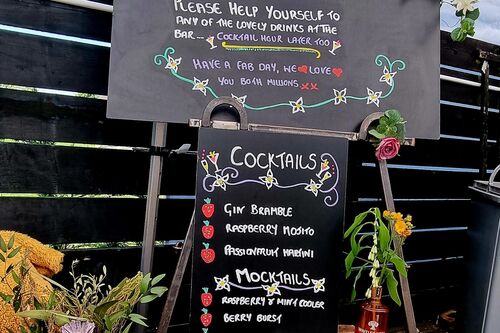 Please Help Yourself to
any of the lovely drinks at the
bar...
Cocktail hour later too
Have a fab day, we love
you both millions xx
Cocktails
Gin Bramble
Raspberry Mojito
Passionfruit Martini
Mocktails
Raspberry & Mint Cooler
Berry Burst